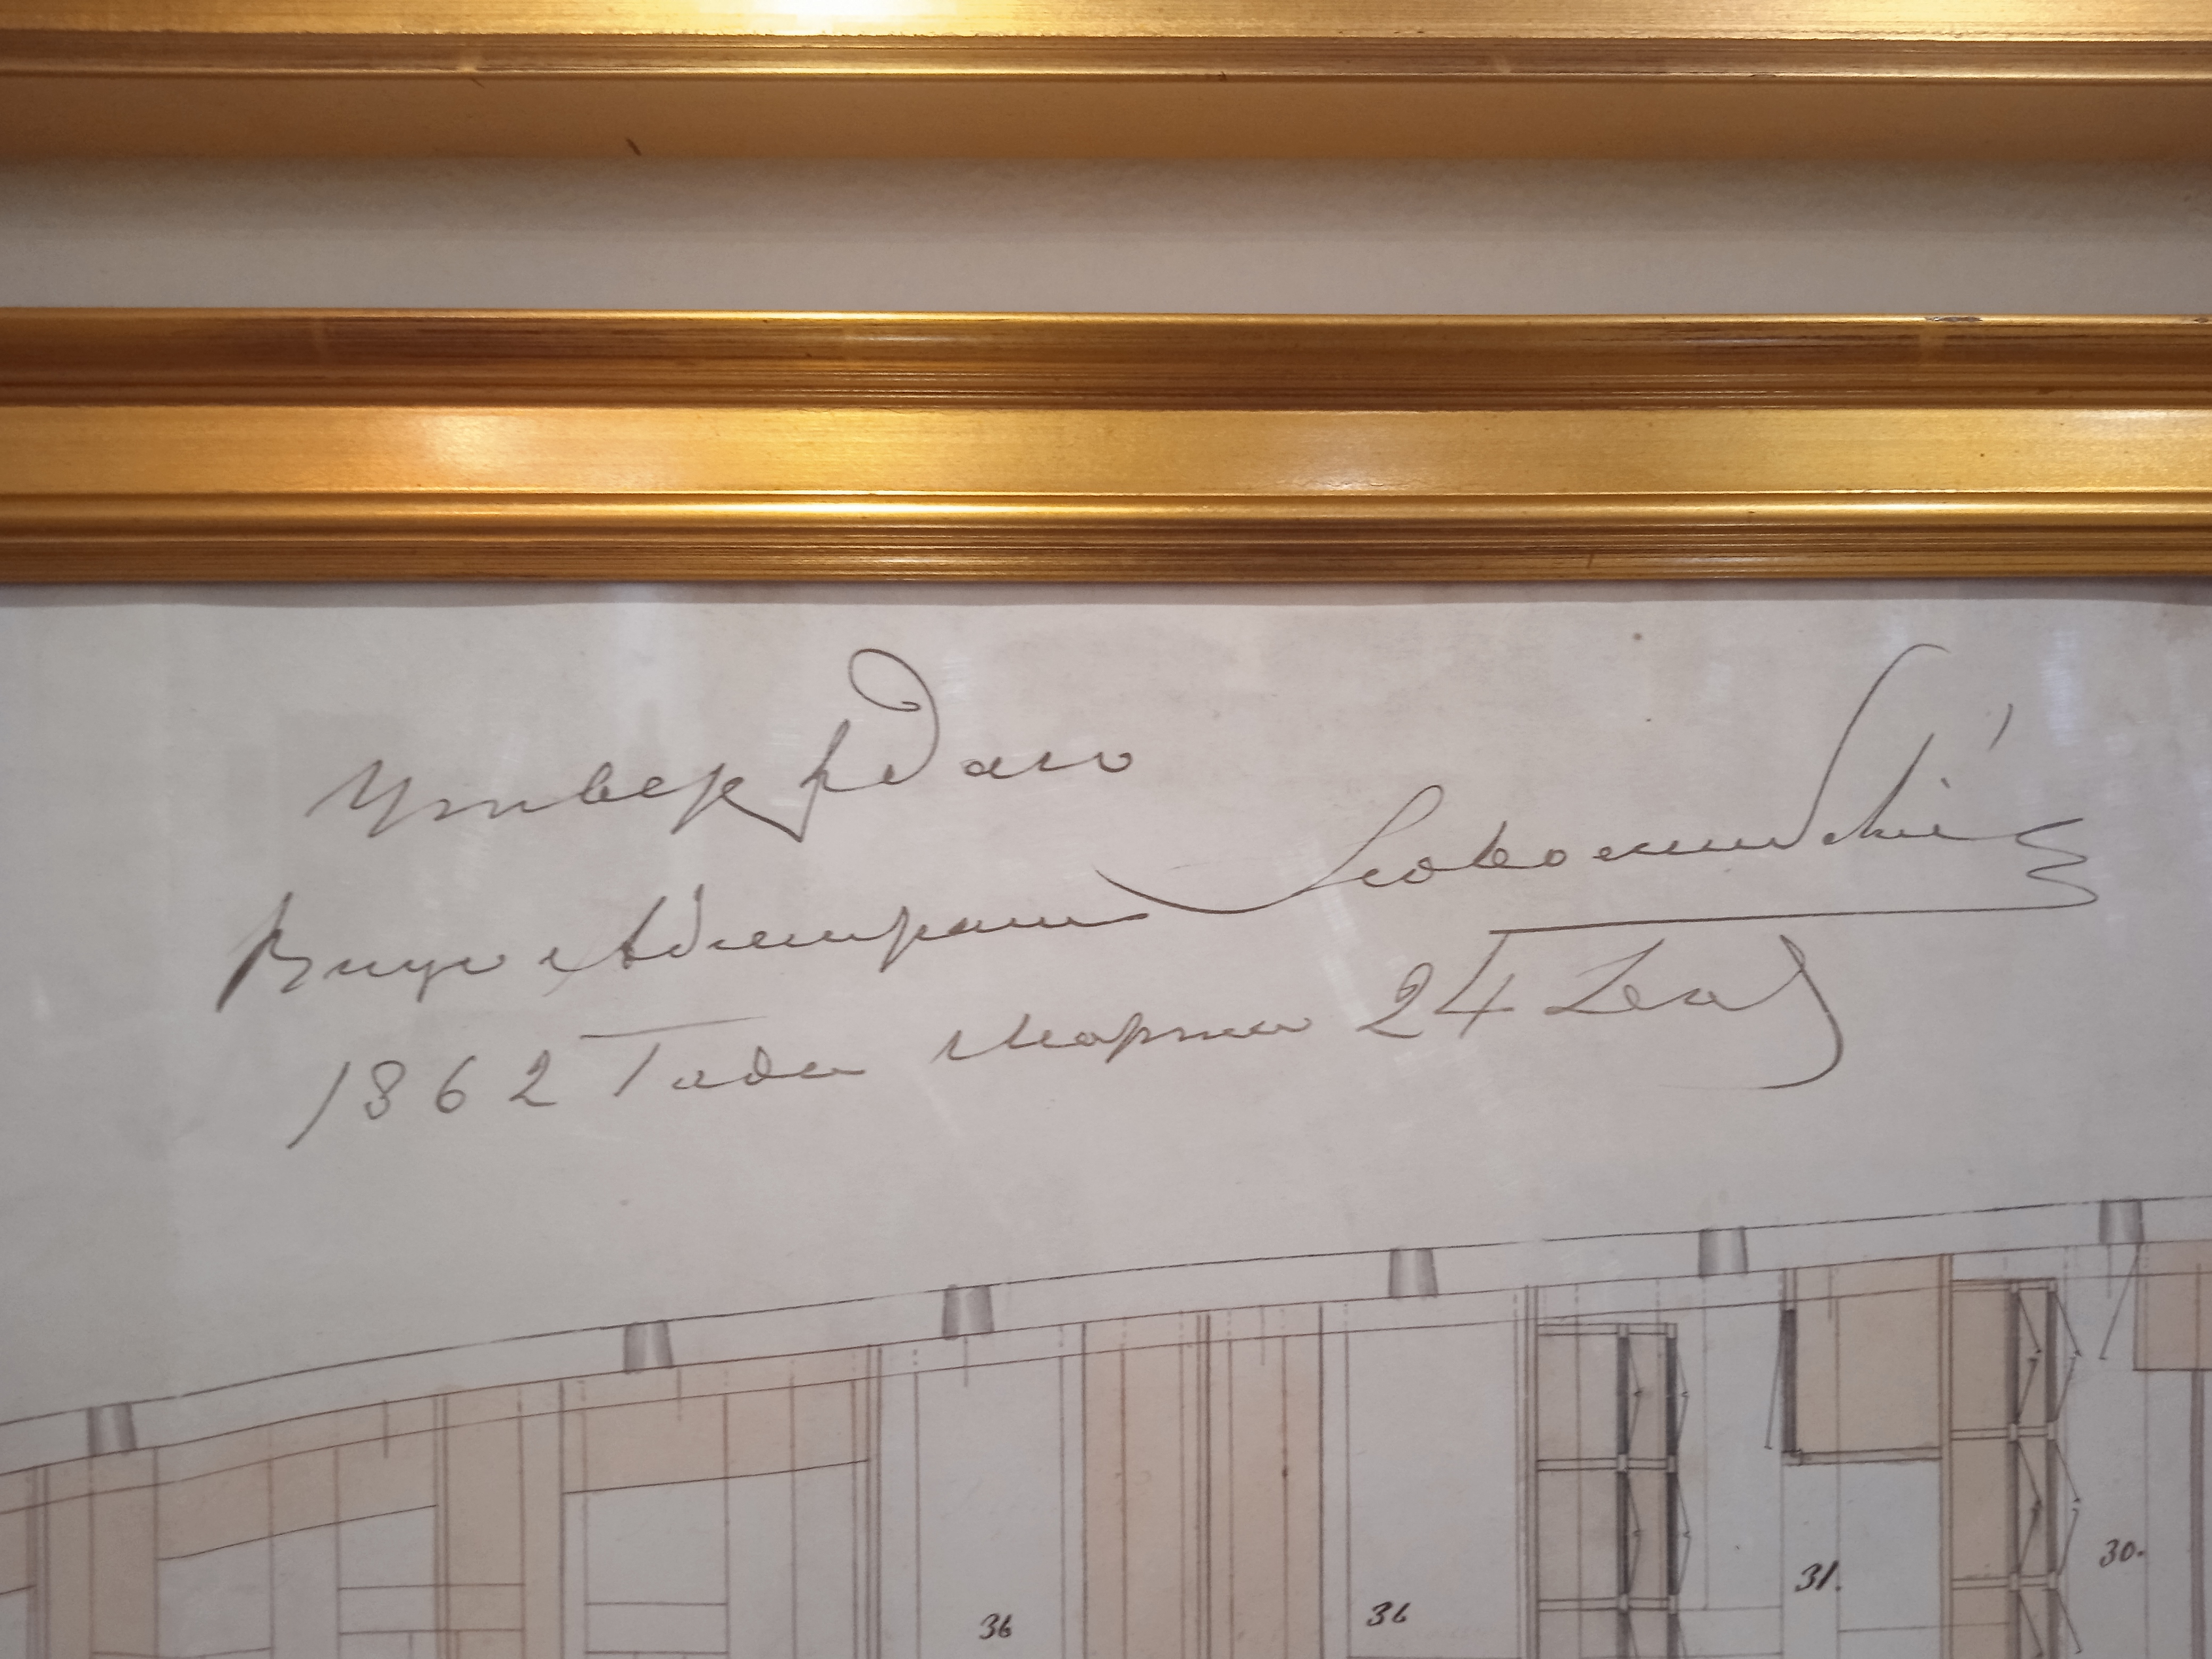 Утверждаю
Вице Адмирал
1862 Года Марта 24 Дня
36
36
31.
30.